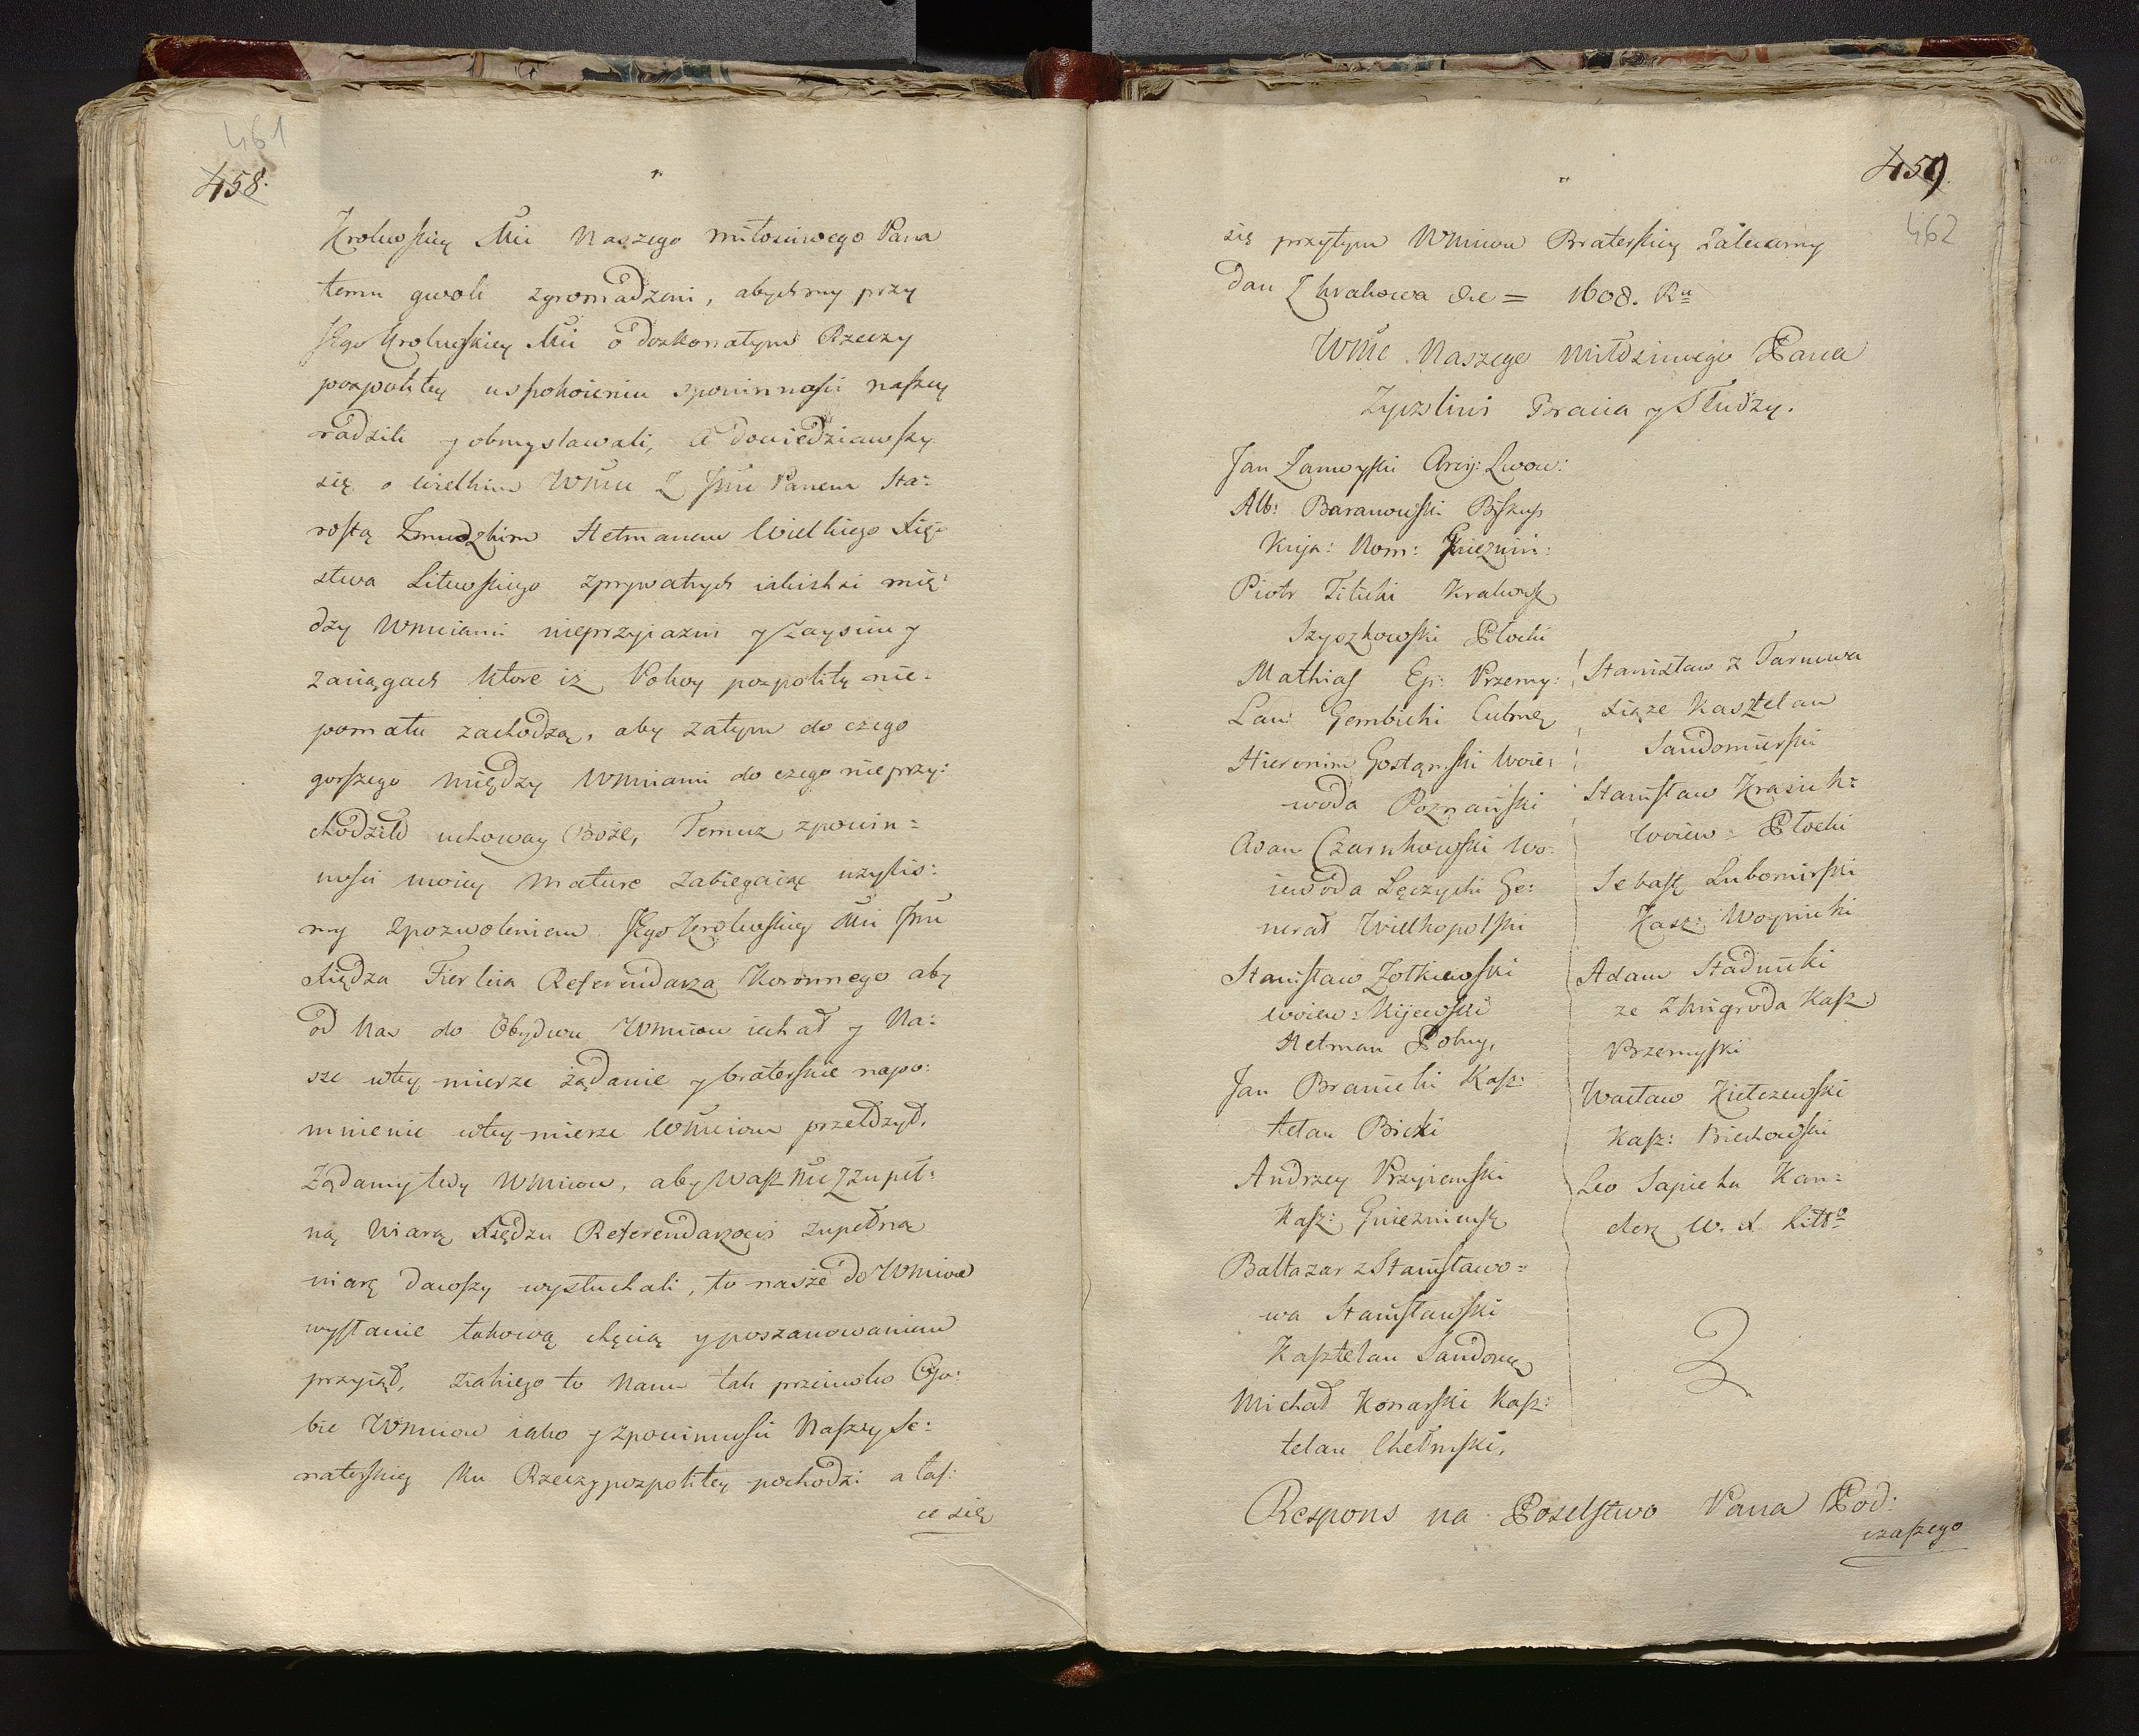 461
458.
Krolewskiey Mci Naszego miłosciwego Pana
temu gwoli zgromadzeni, abychmy przy
JEgo Krolewskiey Mci o doskonałym Rzeczy
pospolitey uspokoieniu zpowinnosci naszey
radzili y obmyslawali, a dowiedziawszy
się o wielkim WMciu z Jmci Panem Sta:
rostą Zmudzkim Hetmanem Wielkiego Xię:
stwa Litewskiego zprywatnych iakichsci mię:
dzy WMciami nieprzyiazni y
zaciągach ktore iz Pokoy pospolity nie:
pomału zachodzą, aby zatym do czego
gorszego między WMciami do czego nieprzy:
chodziło uchoway Boże, Temuz zpowin:
nosci swoiey mature zabiegaiąc użylis:
my zpozwoleniem JEgo Krolewskiey Mci Jmci
Xiędza Firleia Referendarza Koronnego aby
od Nas do Obydwu WMciow iechał y Na:
sze wtey mierze żądanie y braterskie napo:
mnienie wtey mierze WMciom przełożył.
Ządamy tedy WMciow, aby Wasz Mc zzupeł:
ną wiarą Xiędzu Referendarzowi zupełną
wiarę dawszy wysłuchali, to nasze do WMciow
wysłanie takową chęcią y poszanowaniem
przyiął, ziakiego to Nam tak przeciwko Oso:
bie WMciow iako y zpowinnosci Naszey Se:
natorskiey ku Rzeczypospolitey pochodzi a łas:
ce się
459.
462
się przytym WMciom Braterskiey zalecamy
Dan z Krakowa die = 1608. Ru
WMc Naszego Miłosciwego Pana
Zyczliwi Bracia y Słudzy.
Jan Zamoyski Arcy: Lwow:
Alb: Baranowski Biskup
Kuja: Nom: Gnieznin:
Piotr Tilicki Krakowsk
Szyszkowski Płocki
Mathias Ep: Przemy:
Lau: Gembicki Culmen
Hieronim Gostęmski Woie:
woda Poznański
Adam Czarnkowski Wo:
iewoda Lęczycki Ge:
nerał Wielkopolski
Stanisław Zołkiewski
woiew: Kijewski
Hetman Polny,
Jan Branicki Kasz:
telan Biecki
Andrzey Przyiemski
Kasz: Gnieznienski
Baltazar z Stanisławo:
wa Stanisławski
Kasztelan Sandome
Michał Konarski Kasz:
telan Chełmski.
Stanisław z Tarnowa
Xiąze Kasztelan
Sandomierski
Stanisław Krasick:
woiew: Płocki
Sebast Lubomirski
Kasz: Woynicki
Adam Stadnicki
ze Zmigroda Kasz:
Przemyski
Wacław Kiełczewski
Kasz: Biechowski
Leo Sapieha Kan:
clerz W. X. Litto
Respons na Poselstwo Pana Pod:
czaszego